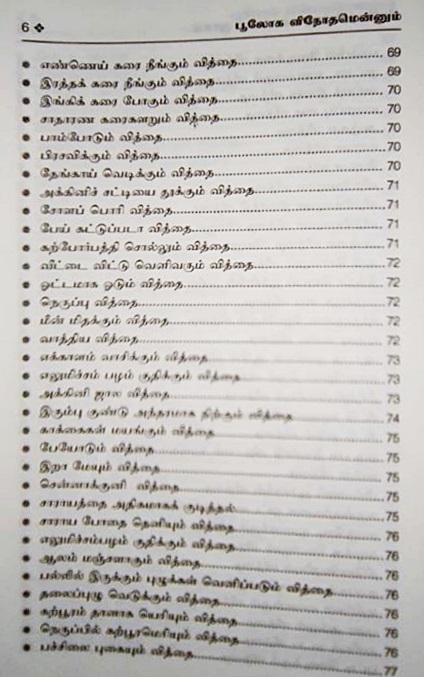 6 ❖ பூலோக விநோதமென்னும்
● எண்ணெய் கரை நீங்கும் வித்தை 69
● இரத்தக் கரை நீங்கும் வித்தை 69
● இங்கிக் கரை போகும் வித்தை 70
● சாதாரண கரைகளறும் வித்தை 70
● பாம்போடும் வித்தை 70
● பிரசவிக்கும் வித்தை 70
● தேங்காய் வெடிக்கும் வித்தை 70
● அக்கினிச் சட்டியை தூக்கும் வித்தை 71
● சோளப் பொரி வித்தை 71
● பேய் கட்டுப்படா வித்தை 71
● கற்போர்பத்தி சொல்லும் வித்தை 71
● வீட்டை விட்டு வெளிவரும் வித்தை 72
● ஓட்டமாக ஓடும் வித்தை 72
● நெருப்பு வித்தை 72
● மீன் மிதக்கும் வித்தை 72
● வாத்திய வித்தை 72
● எக்காளம் வாசிக்கும் வித்தை 73
● எலுமிச்சம் பழம் குதிக்கும் வித்தை 73
● அக்கினி ஜால வித்தை 73
● இரும்பு குண்டு அந்தரமாக நிற்கும் வித்தை 74
● காக்கைகள் மயங்கும் வித்தை 75
● பேயோடும் வித்தை 75
● இறா மேயும் வித்தை 75
● சென்னாக்குனி வித்தை 75
● சாராயத்தை அதிகமாகக் குடித்தல் 75
● சாராய போதை தெளியும் வித்தை 76
● எலுமிச்சம்பழம் குதிக்கும் வித்தை 76
● ஆலம் மஞ்சளாகும் வித்தை 76
● பல்லில் இருக்கும் புழுக்கள் வெளிப்படும் வித்தை 76
● தலைப்புழு வெடுக்கும் வித்தை 76
● கற்பூரம் தானாக யெரியும் வித்தை 76
● நெருப்பில் கற்பூரமெரியும் வித்தை 76
● பச்சிலை புகையும் வித்தை 77